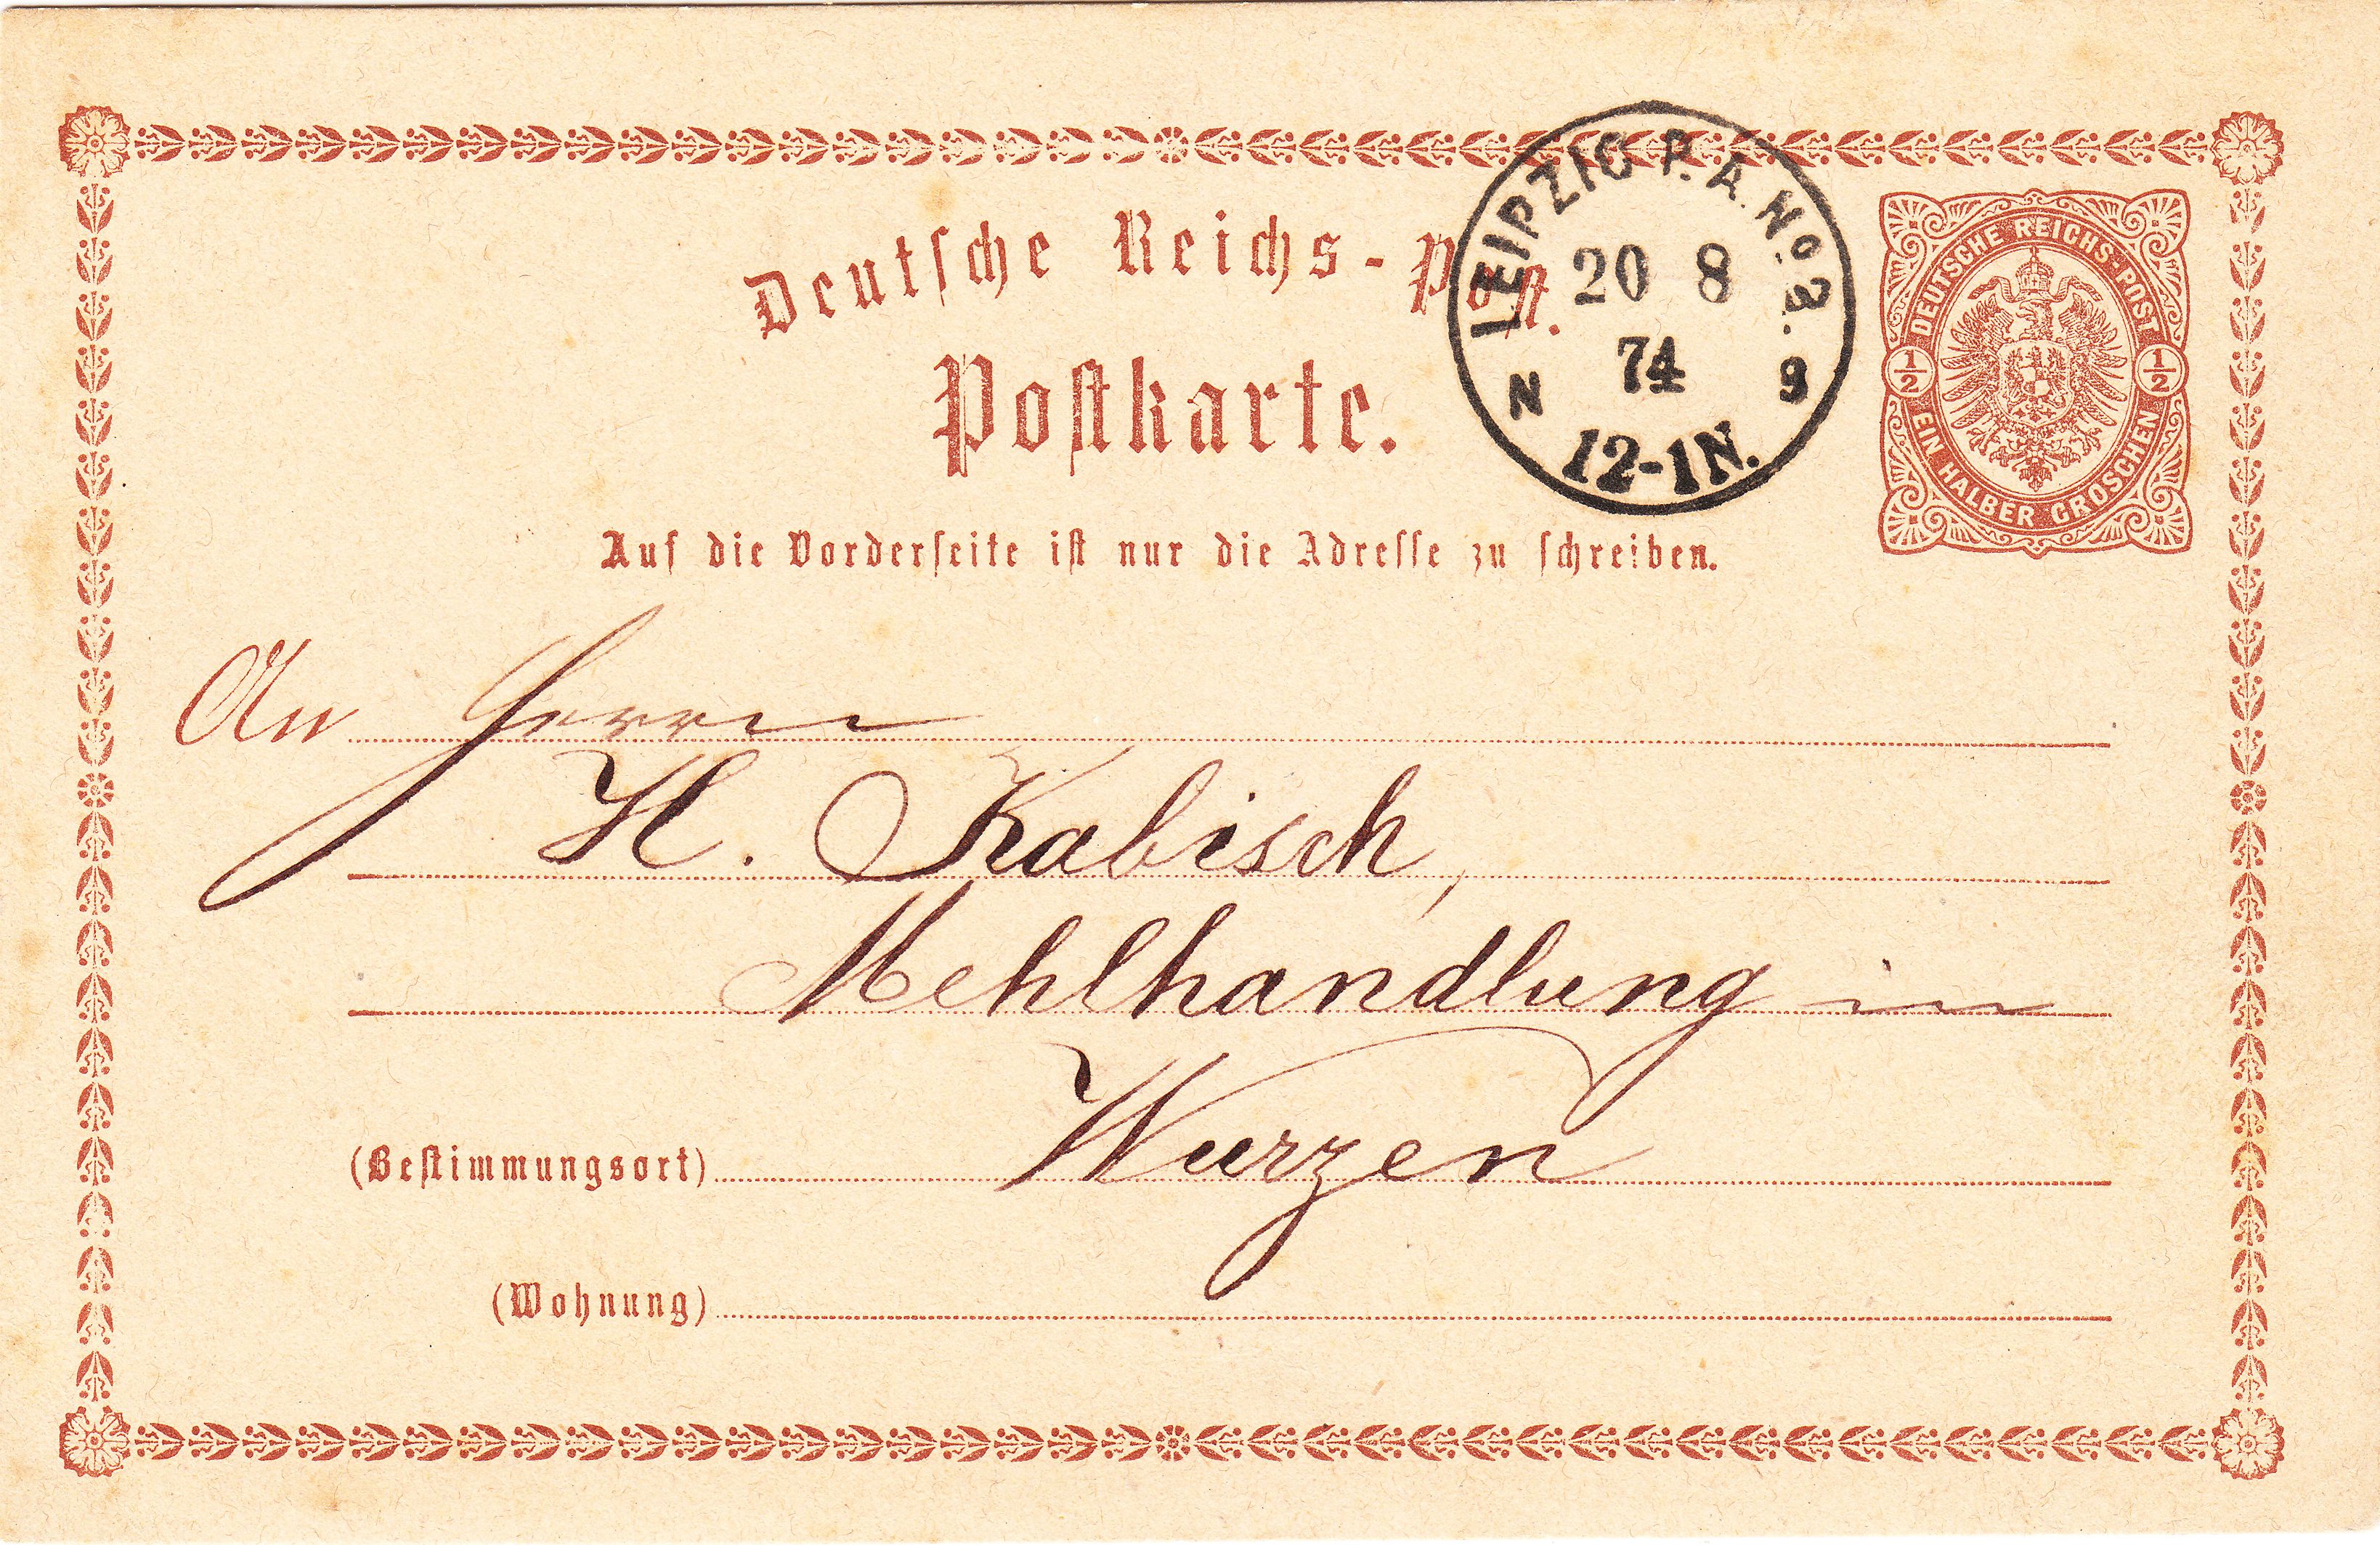 Deutsche Reichs-Post.
LEIPZIG P. A. No. 2.
20 8
74
N 9
12-1N.
DEUTSCHE REICHS-POST
1/2 1/2
EIN HALBER GROSCHEN
Postkarte.
Auf die Vorderseite ist nur die Adresse zu schreiben.
An Herrn
H. Kabisch,
Mehlhandlung in
(Bestimmungsort) Wurzen
(Wohnung)